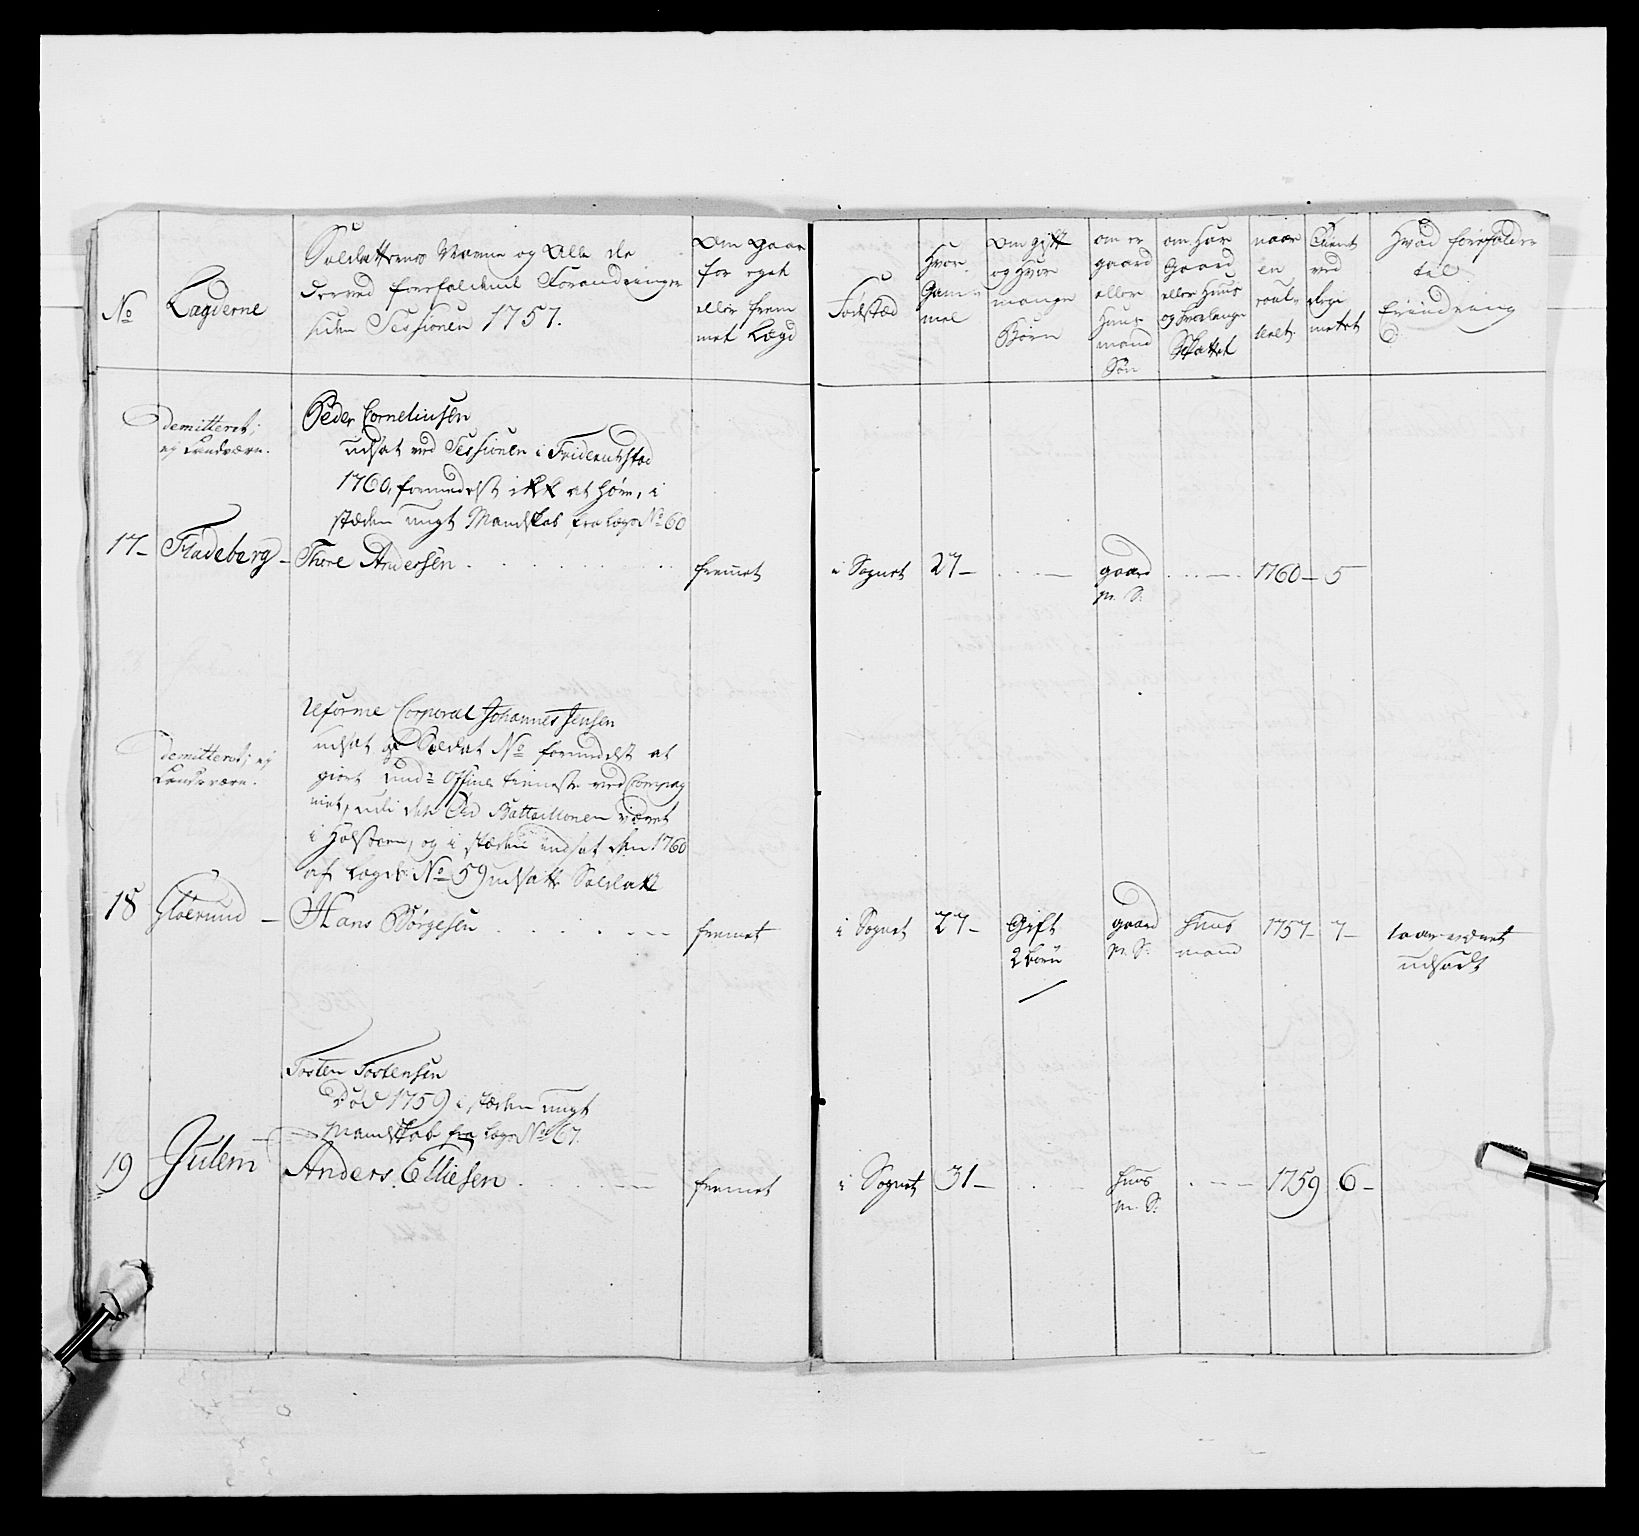 No
Lægderne
Soldatternes Navne og Alle de
derved forefaldene Forandringer
siden Sessionen 1757.
Om Gaar
for eget
eller frem
met Lægd
Fødstæd
Hvor
Gam=
mel
Om gift
og hvor
mange
Børn
om er
gaard
eller
Huus
mand
Søn
om har
Gaard
eller Huus
og hvorlænge
naar
en
roul-
lert
tient
ved
Regi
mentet
Hvad forefalder
til
Erindring
demitteret;
ej Landværn.
Peder Corneliusen
udsat ved Sessionen i Friderichstad
1760, formedelst ikk at høre, i
stæden ungt Mandskab fra Lægd No 60
17- Fladeberg - Thore Andersen
fremet
i Sognet 27- gaard 1760- 5
m. S:
demitteret; ej
Landværn.
Reforme Corporal Johannes Jensen
udsat af Soldat No formedelst at
giort Und= Officer tieneste ved Compag
niet, udi den tid Battaillionen været
i Holsteen, og i stæden indsat den 1760
af Lægds No 59 udsatte Soldat
18 Gloerund - Hans Børgesen
fremet
i Sognet 27- Gift gaard Huus 1757- 7-
2 børn m. S: mand
udsadt
Torsten Torstensen
Død 1759 i stæden ungt
Mandskab fra Lægd No 67.
19 Julem Anders Elliesen
fremet
i Sognet 31- Huus 1759 6-
m. S: